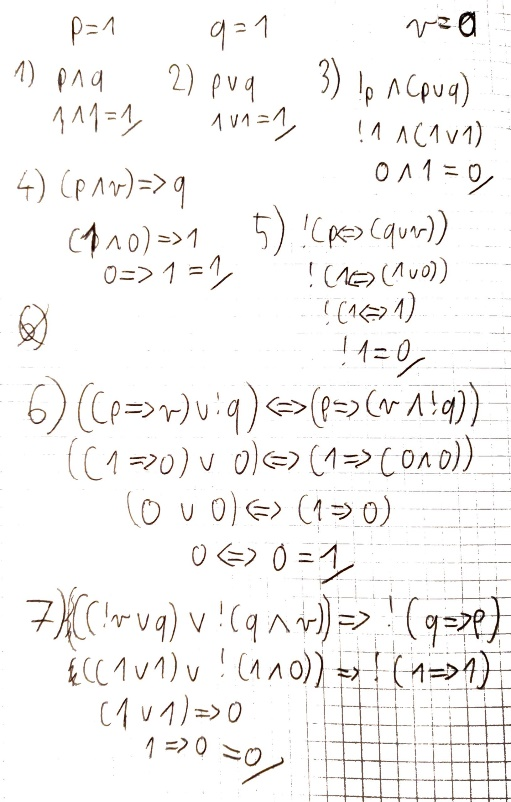 p=1 q=1 r=0
1) p∧q 2) p∨q 3) !p ∧(p∨q)
1∧1=1 1∨1=1 !1 ∧(1∨1)
0∧1=0
4) (p∧r)=>q
(1∧0)=>1 5) !(p<=>(q∨r))
0=>1=1 !(1<=>(1∨0))
!(1<=>1)
!1=0
6) ((p=>r)∨!q)<=>(p=>(r∧!q))
((1=>0)∨0)<=>(1=>(0∧0))
(0∨0)<=>(1=>0)
0<=>0=1
7) ((!r∨q)∨!(q∧r))=>!(q=>p)
((1∨1)∨!(1∧0))=>!(1=>1)
(1∨1)=>0
1=>0=0